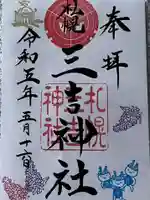 奉拝
札幌
三吉神社
札幌
神社
令和五年五月十六日